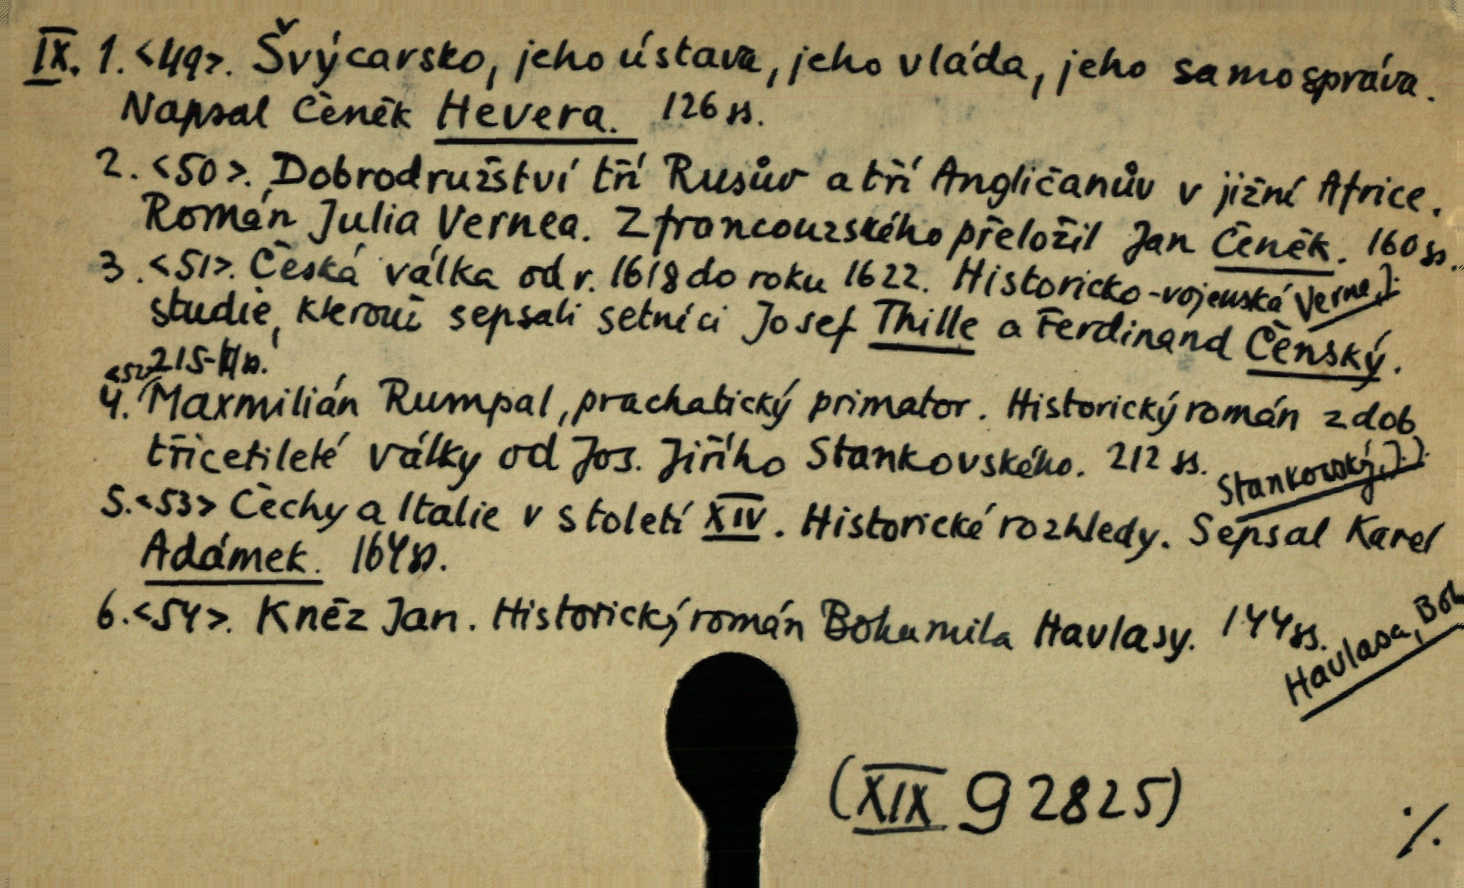 IX. 1. <49>. Švýcarsko, jeho ústava, jeho vláda, jeho samospráva.
Napsal Čeněk Hevera. 126 ss.
2. <50>. Dobrodružství tří Rusův a tří Angličanův v jižní Africe.
Román Julia Vernea. Z francouzského přeložil Jan Čeněk. 160 ss.
Verne, J.
3. <51>. Česká válka od r. 1618 do roku 1622. Historicko-vojenská
studie, kterouž sepsali setníci Josef Thille a Ferdinand Čenský.
215
4. <52> Maxmilián Rumpal, prachatický primator. Historický román z dob
třicetileté války od Jos. Jiřího Stankovského. 212 ss.
Stankovský, J. J.
5. <53> Čechy a Italie v století XIV. Historické rozhledy. Sepsal Karel
Adámek. 164 ss.
6. <54>. Kněz Jan. Historický román Bohumila Havlasy. 144 ss.
Havlasa, Boh
(XIX g 2825)
./.